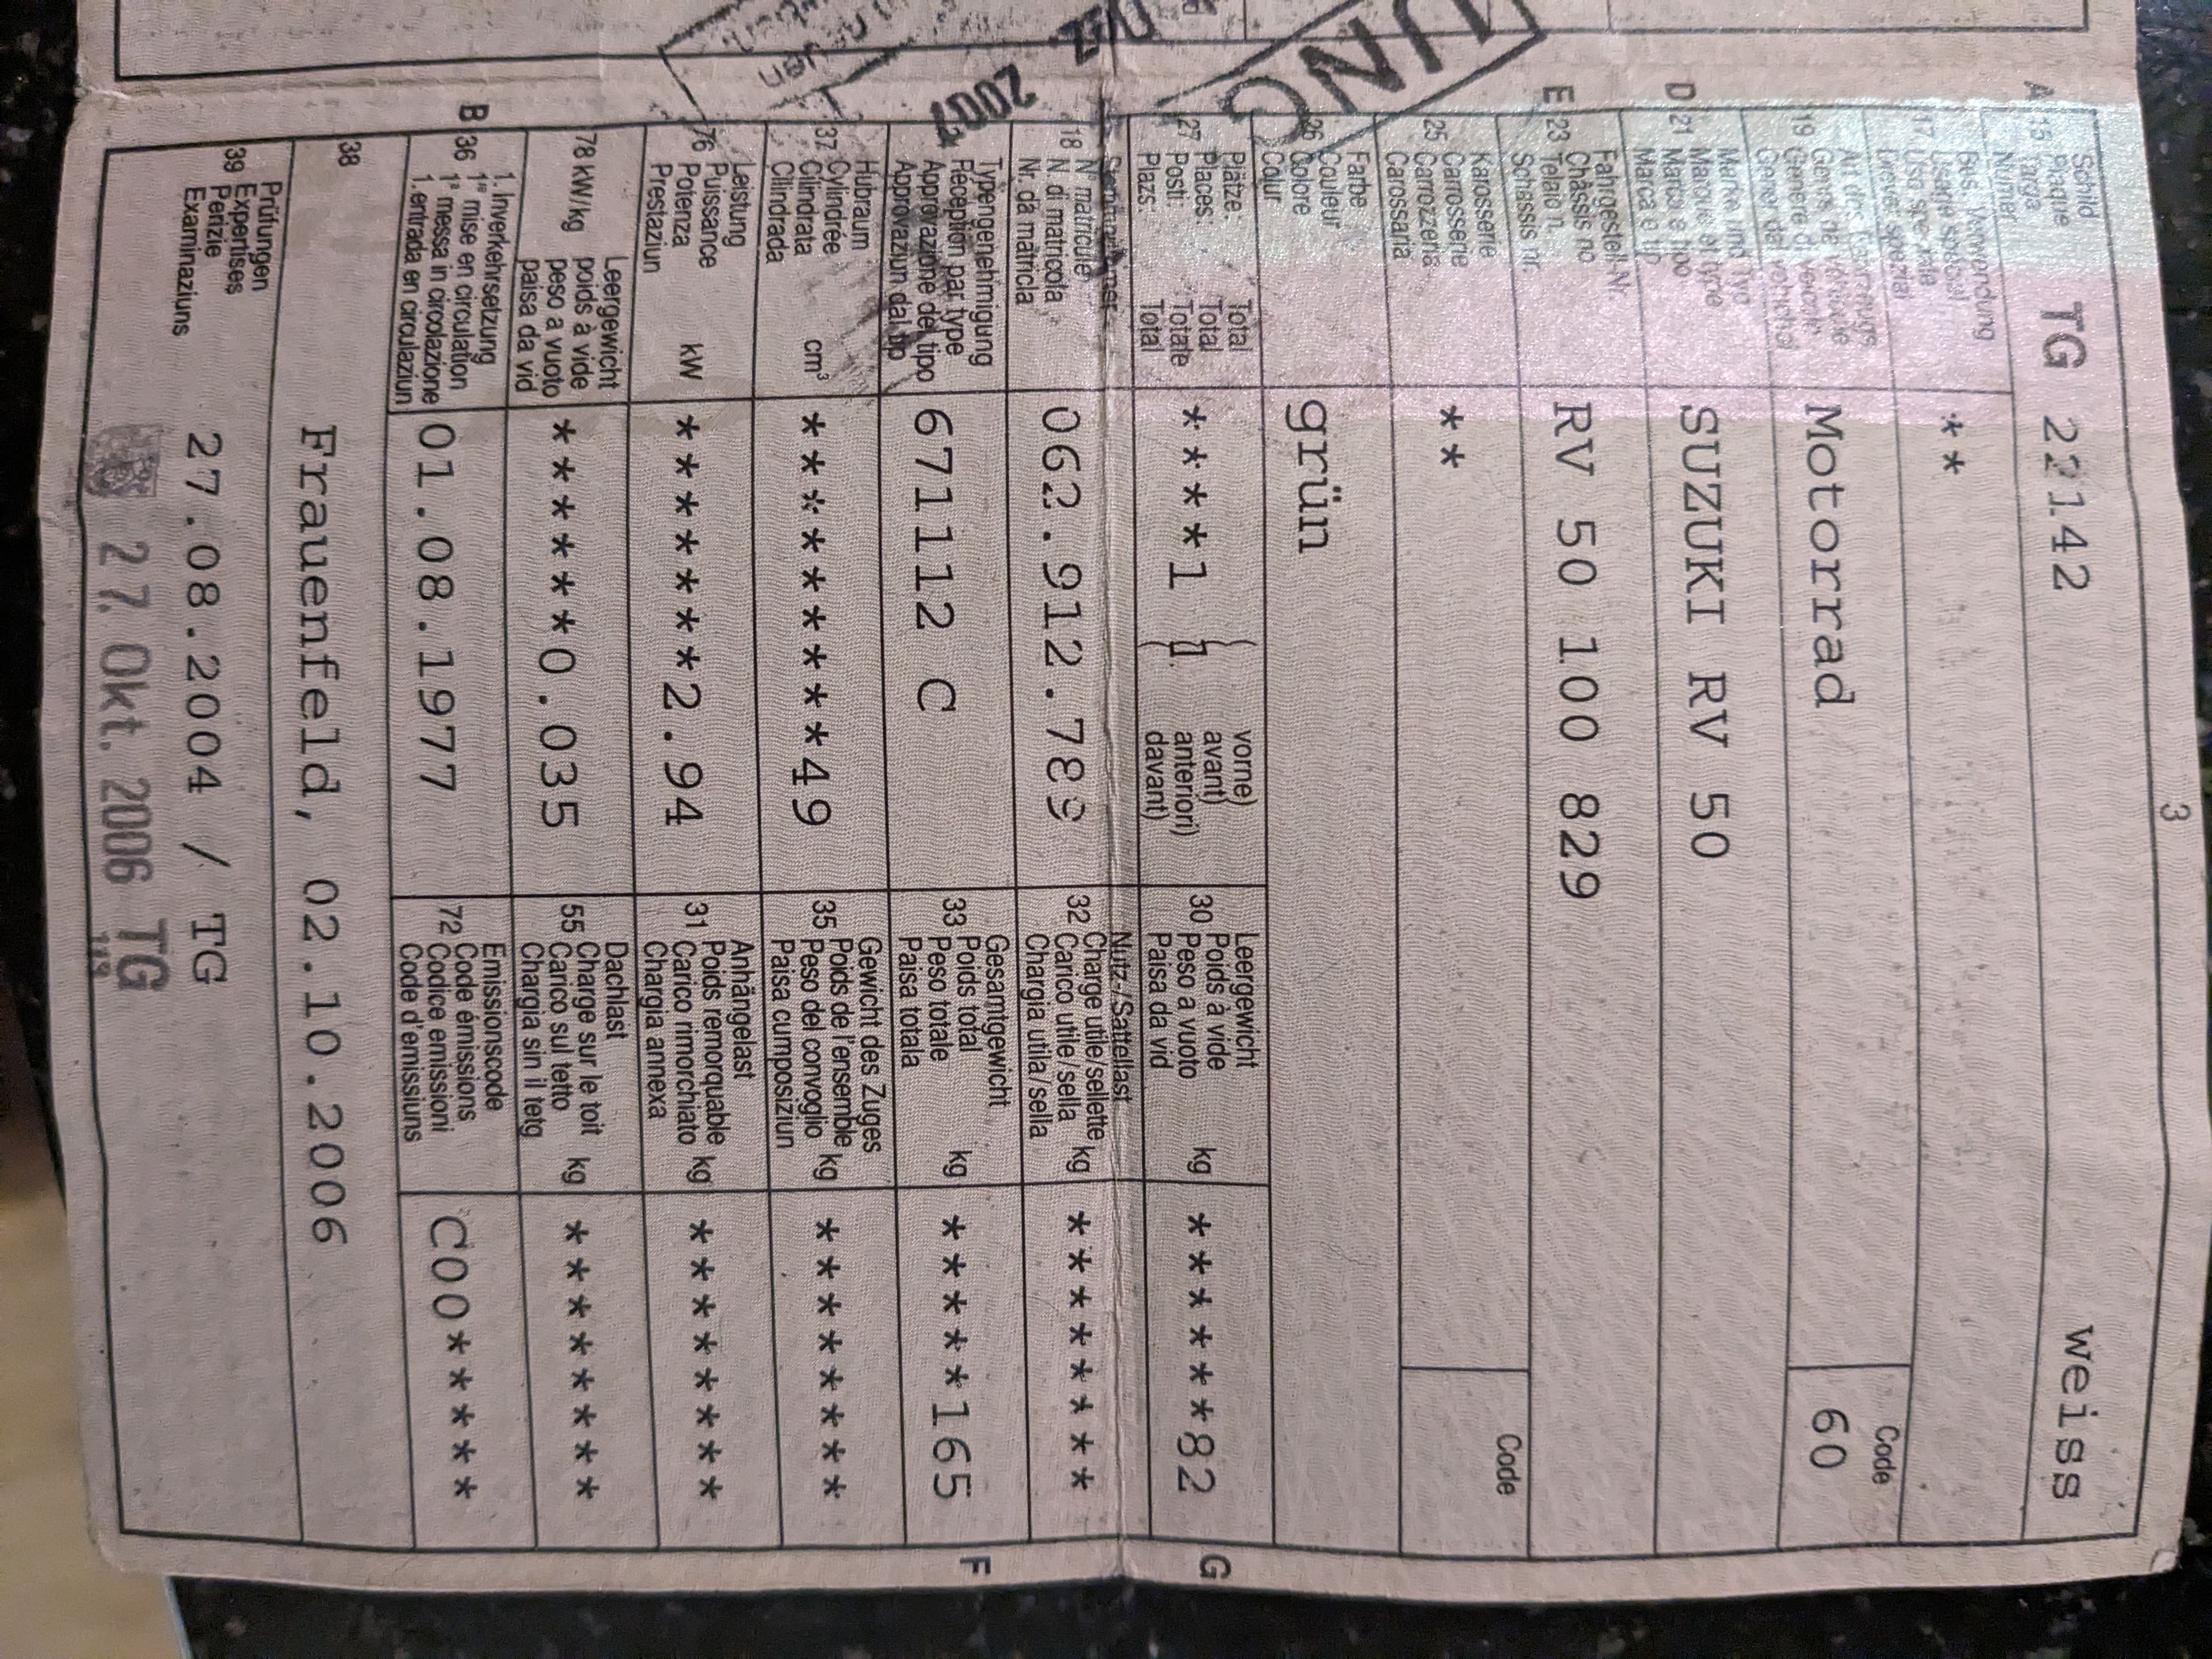 3
A
Schild
15 Plaque
Targa
Numer
TG 22142
weiss
Bes. Verwendung
Usage spécial
17 Uso speciale
**
Art des Fahrzeugs
Genre de véhicule
19 Genere di veicolo
Gener dal vehichel
Motorrad
Code
60
D
Marke und Typ
21 Marque et type
Marca e tipo
Marca e tip
SUZUKI RV 50
E
Fahrgestell-Nr.
23 Châssis no
Telaio n.
Schassis nr.
RV 50 100 829
Karosserie
25 Carrosserie
Carrozzeria
Carossaria
**
Code
Farbe
Couleur
26 Colore
Colur
grün
Plätze: Total
27 Places: Total
Posti: Totale
Plazs: Total
****1
1.
vorne)
avant)
anteriori)
davant)
Leergewicht
30 Poids à vide
Peso a vuoto
Paisa da vid
kg
******82
G
Stammnummer
18 N° matricule
N. di matricola
Nr. da matricla
062.912.789
Nutz-/Sattellast
32 Charge utile/sellette
Carico utile/sella
Chargia utila/sella
kg
********
Typengenehmigung
24 Réception par type
Approvazione del tipo
Approvaziun dal tip
671112 C
Gesamtgewicht
33 Poids total
Peso totale
Paisa totala
kg
*****165
F
Hubraum
37 Cylindrée
Cilindrata
Cilindrada
cm³
*********49
Gewicht des Zuges
35 Poids de l'ensemble
Peso del convoglio
Paisa cumposiziun
kg
********
Leistung
76 Puissance
Potenza
Prestaziun
kW
*******2.94
Anhängelast
31 Poids remorquable
Carico rimorchiato
Chargia annexa
kg
********
78 kW/kg
Leergewicht
poids à vide
peso a vuoto
paisa da vid
******0.035
Dachlast
55 Charge sur le toit
Carico sul tetto
Chargia sin il tetg
kg
********
B
1. Inverkehrsetzung
36 1re mise en circulation
1a messa in circolazione
1. entrada en circulaziun
01.08.1977
Emissionscode
72 Code émissions
Codice emissioni
Code d'emissiuns
C00*****
38
Frauenfeld, 02.10.2006
Prüfungen
39 Expertises
Perizie
Examinaziuns
27.08.2004 / TG
27. Okt. 2006 TG
119
2007
UNG